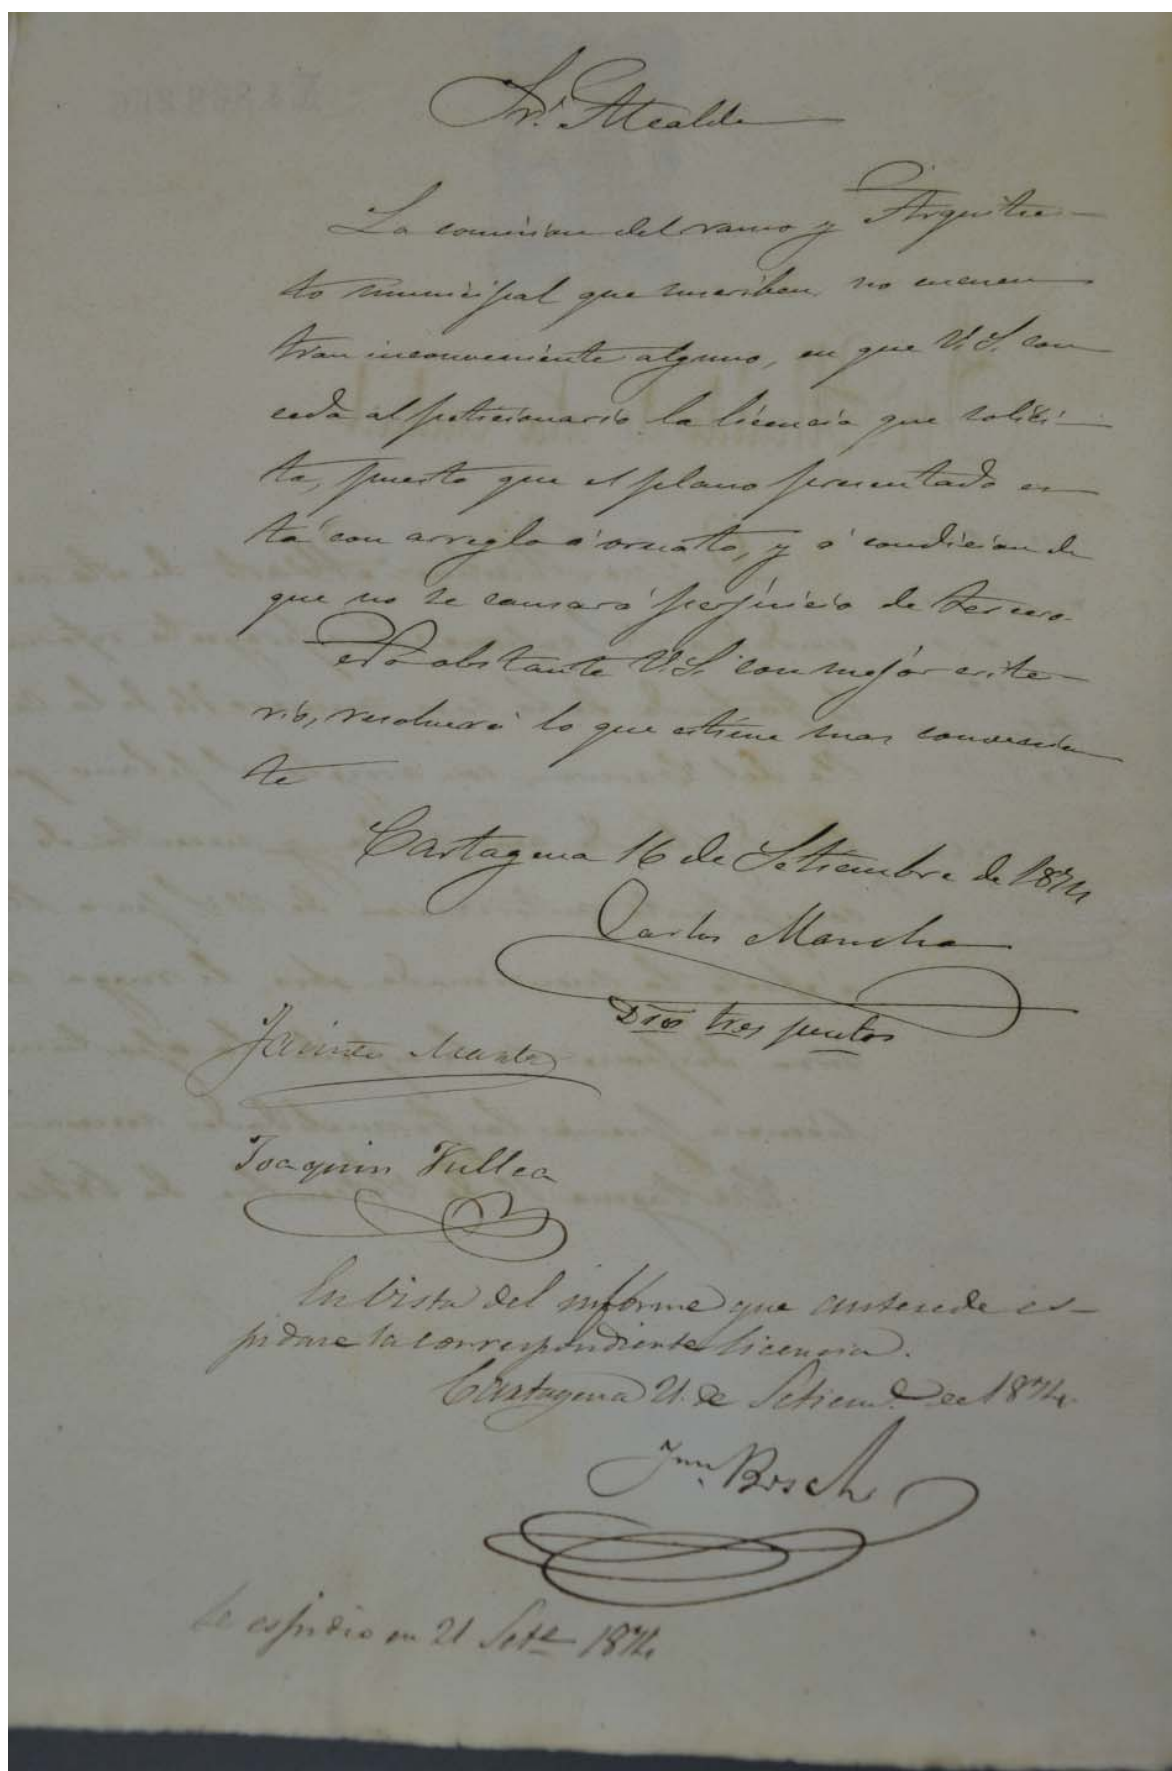 Sr. Alcalde
La comision del ramo y Arquitec
to municipal que suscriben no encuen
tran inconveniente alguno, en que V.S. con
ceda al peticionario la licencia que solici
ta, puesto que el plano presentado es
tá con arreglo á ornato, y á condicion de
que no se causará perjuicio de tercero.
No obstante V.S. con mejor crite
rio, resolverá lo que estime mas convenien
te
Cartagena 16 de Setiembre de 1874
Carlos Mancha
Dros tres puntos
Jacinto
Joaquin
En vista del informe que antecede es
pidase la correspondiente licencia.
Cartagena 21 de Setiem.e de 1874
Jnn. Bosch
Se espidio en 21 Set.e 1874